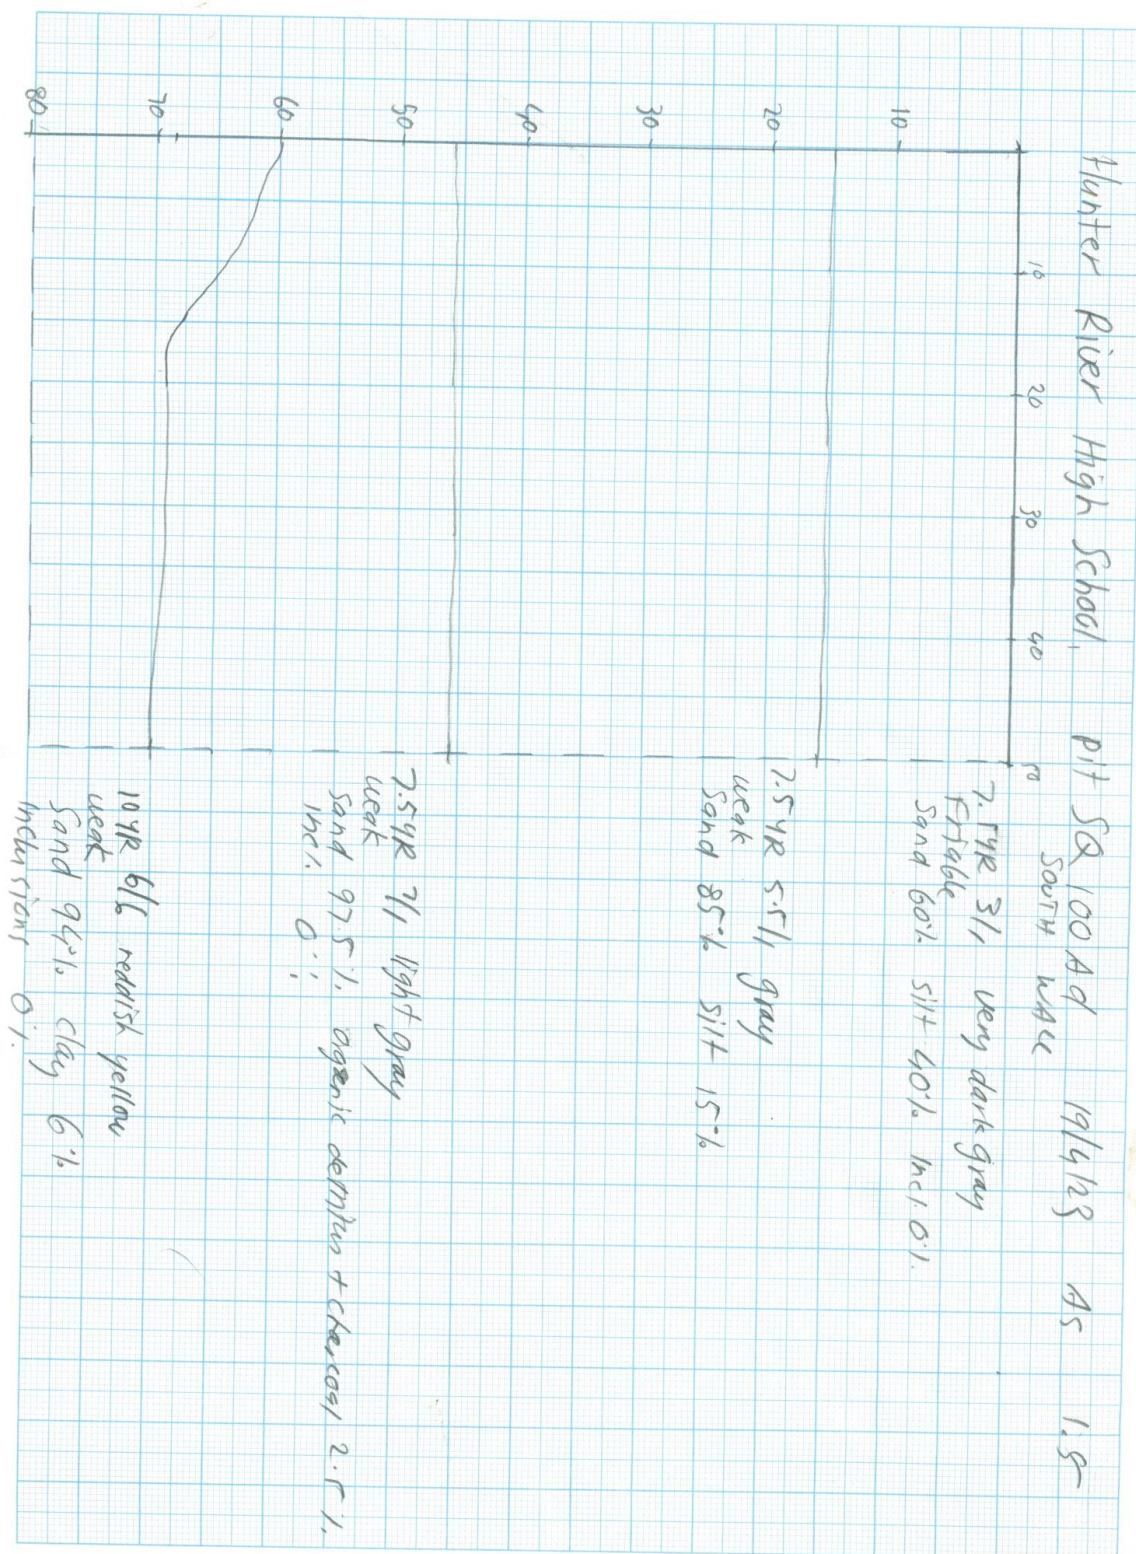 Hunter River High School, Pit SQ 100 Ad 19/4/23 AS 1:5
South Wall
10 20 30 40 50
10
20
30
40
50
60
70
80
7.5YR 3/1 very dark gray
Friable
Sand 60% silt 40% incl. 0%
7.5YR 5.5/1 gray
weak
Sand 85% silt 15%
7.5YR 7/1 light gray
weak
Sand 97.5% organic detritus + charcoal 2.5%
incl. 0%
10YR 6/6 reddish yellow
weak
Sand 94% clay 6%
Inclusions 0%